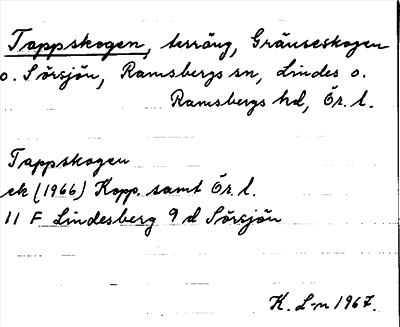 Tappskogen, terräng, Gränseskogen
o. Sörsjön, Ramsbergs sn, Lindes o.
Ramsbergs hd, Ör. l.
Tappskogen
ek (1966) Kopp. samt Ör. l.
11 F Lindesberg 9 d Sörsjön
K. L-n 1967.